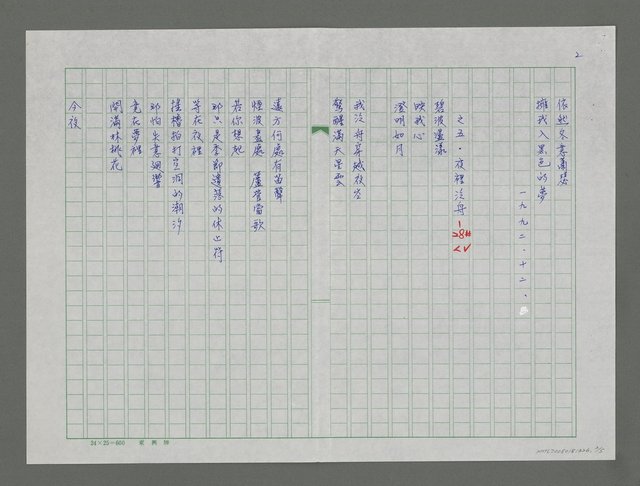 2
依然冬意蕭瑟
擁我入黑色的夢
一九九二．十二．
之五．夜裡泛舟
碧波盪漾
映我心
澄明如月
我泛舟穿越夜空
驚醒滿天星雲
遠方何處有笛聲
煙波盡處 蘆管當歌
若你想起
那只是季節遺落的休止符
等在夜裡
搖櫓拍打空洞的潮汐
那怕失意迴響
竟在夢裡
開滿林桃花
今夜
24×25=600